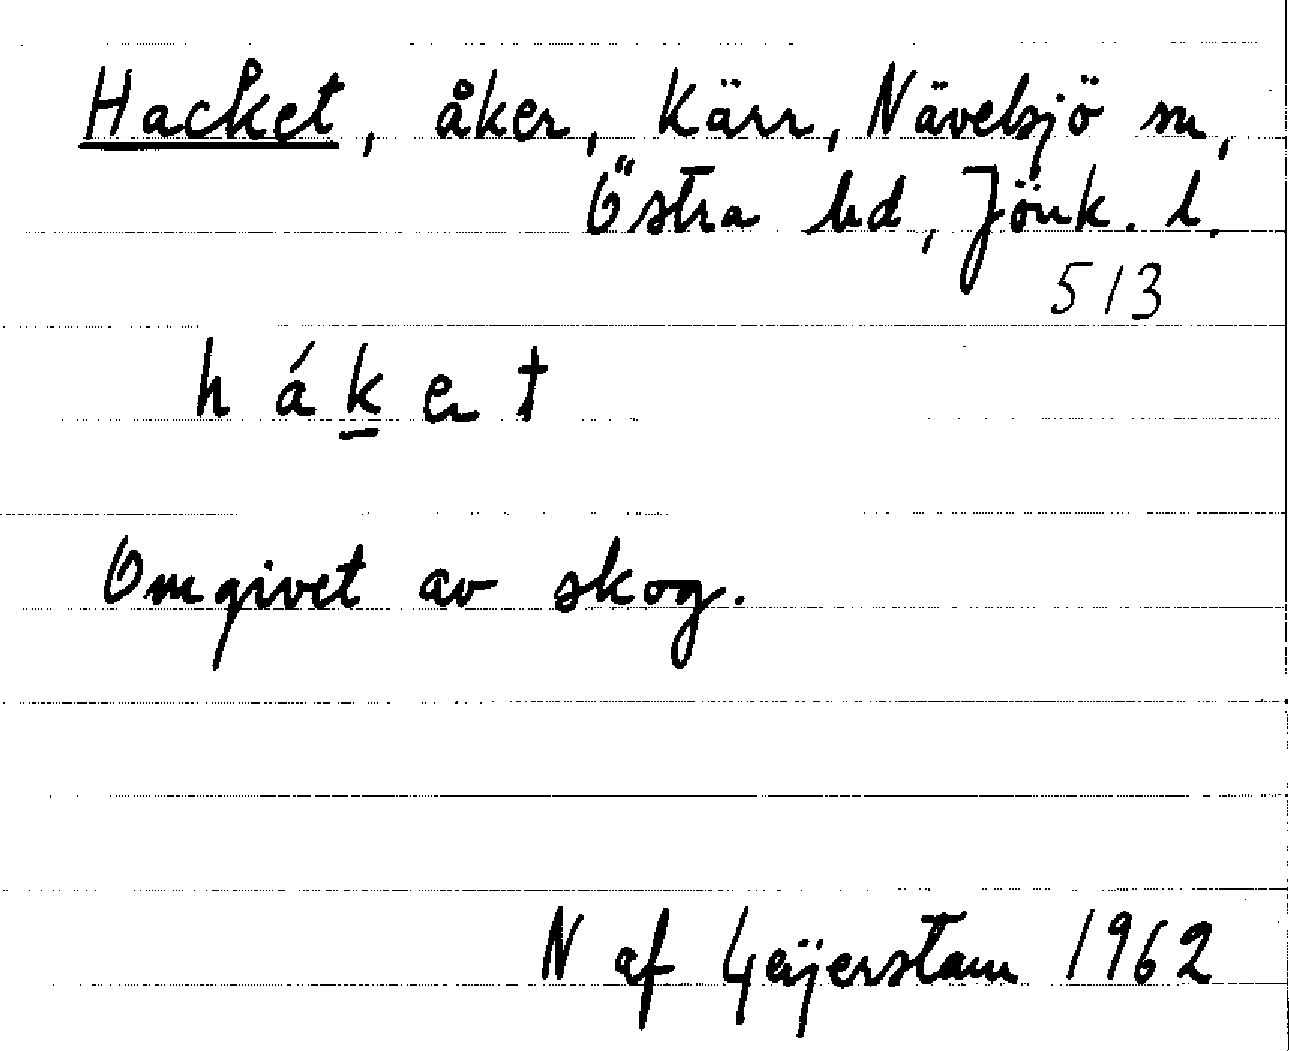 Hacket, åker, Kärr, Nävelsjö sn,
Östra hd, Jönk. l.
513
h á k e t
Omgivet av skog.
N af Geijerstam 1962